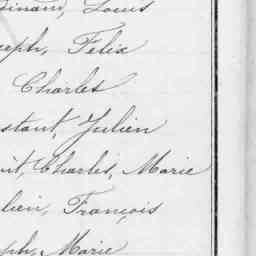 dinand, Louis
seph, Felix
Charles
stant, Julien
oit, Charles, Marie
lien, François
eph, Marie